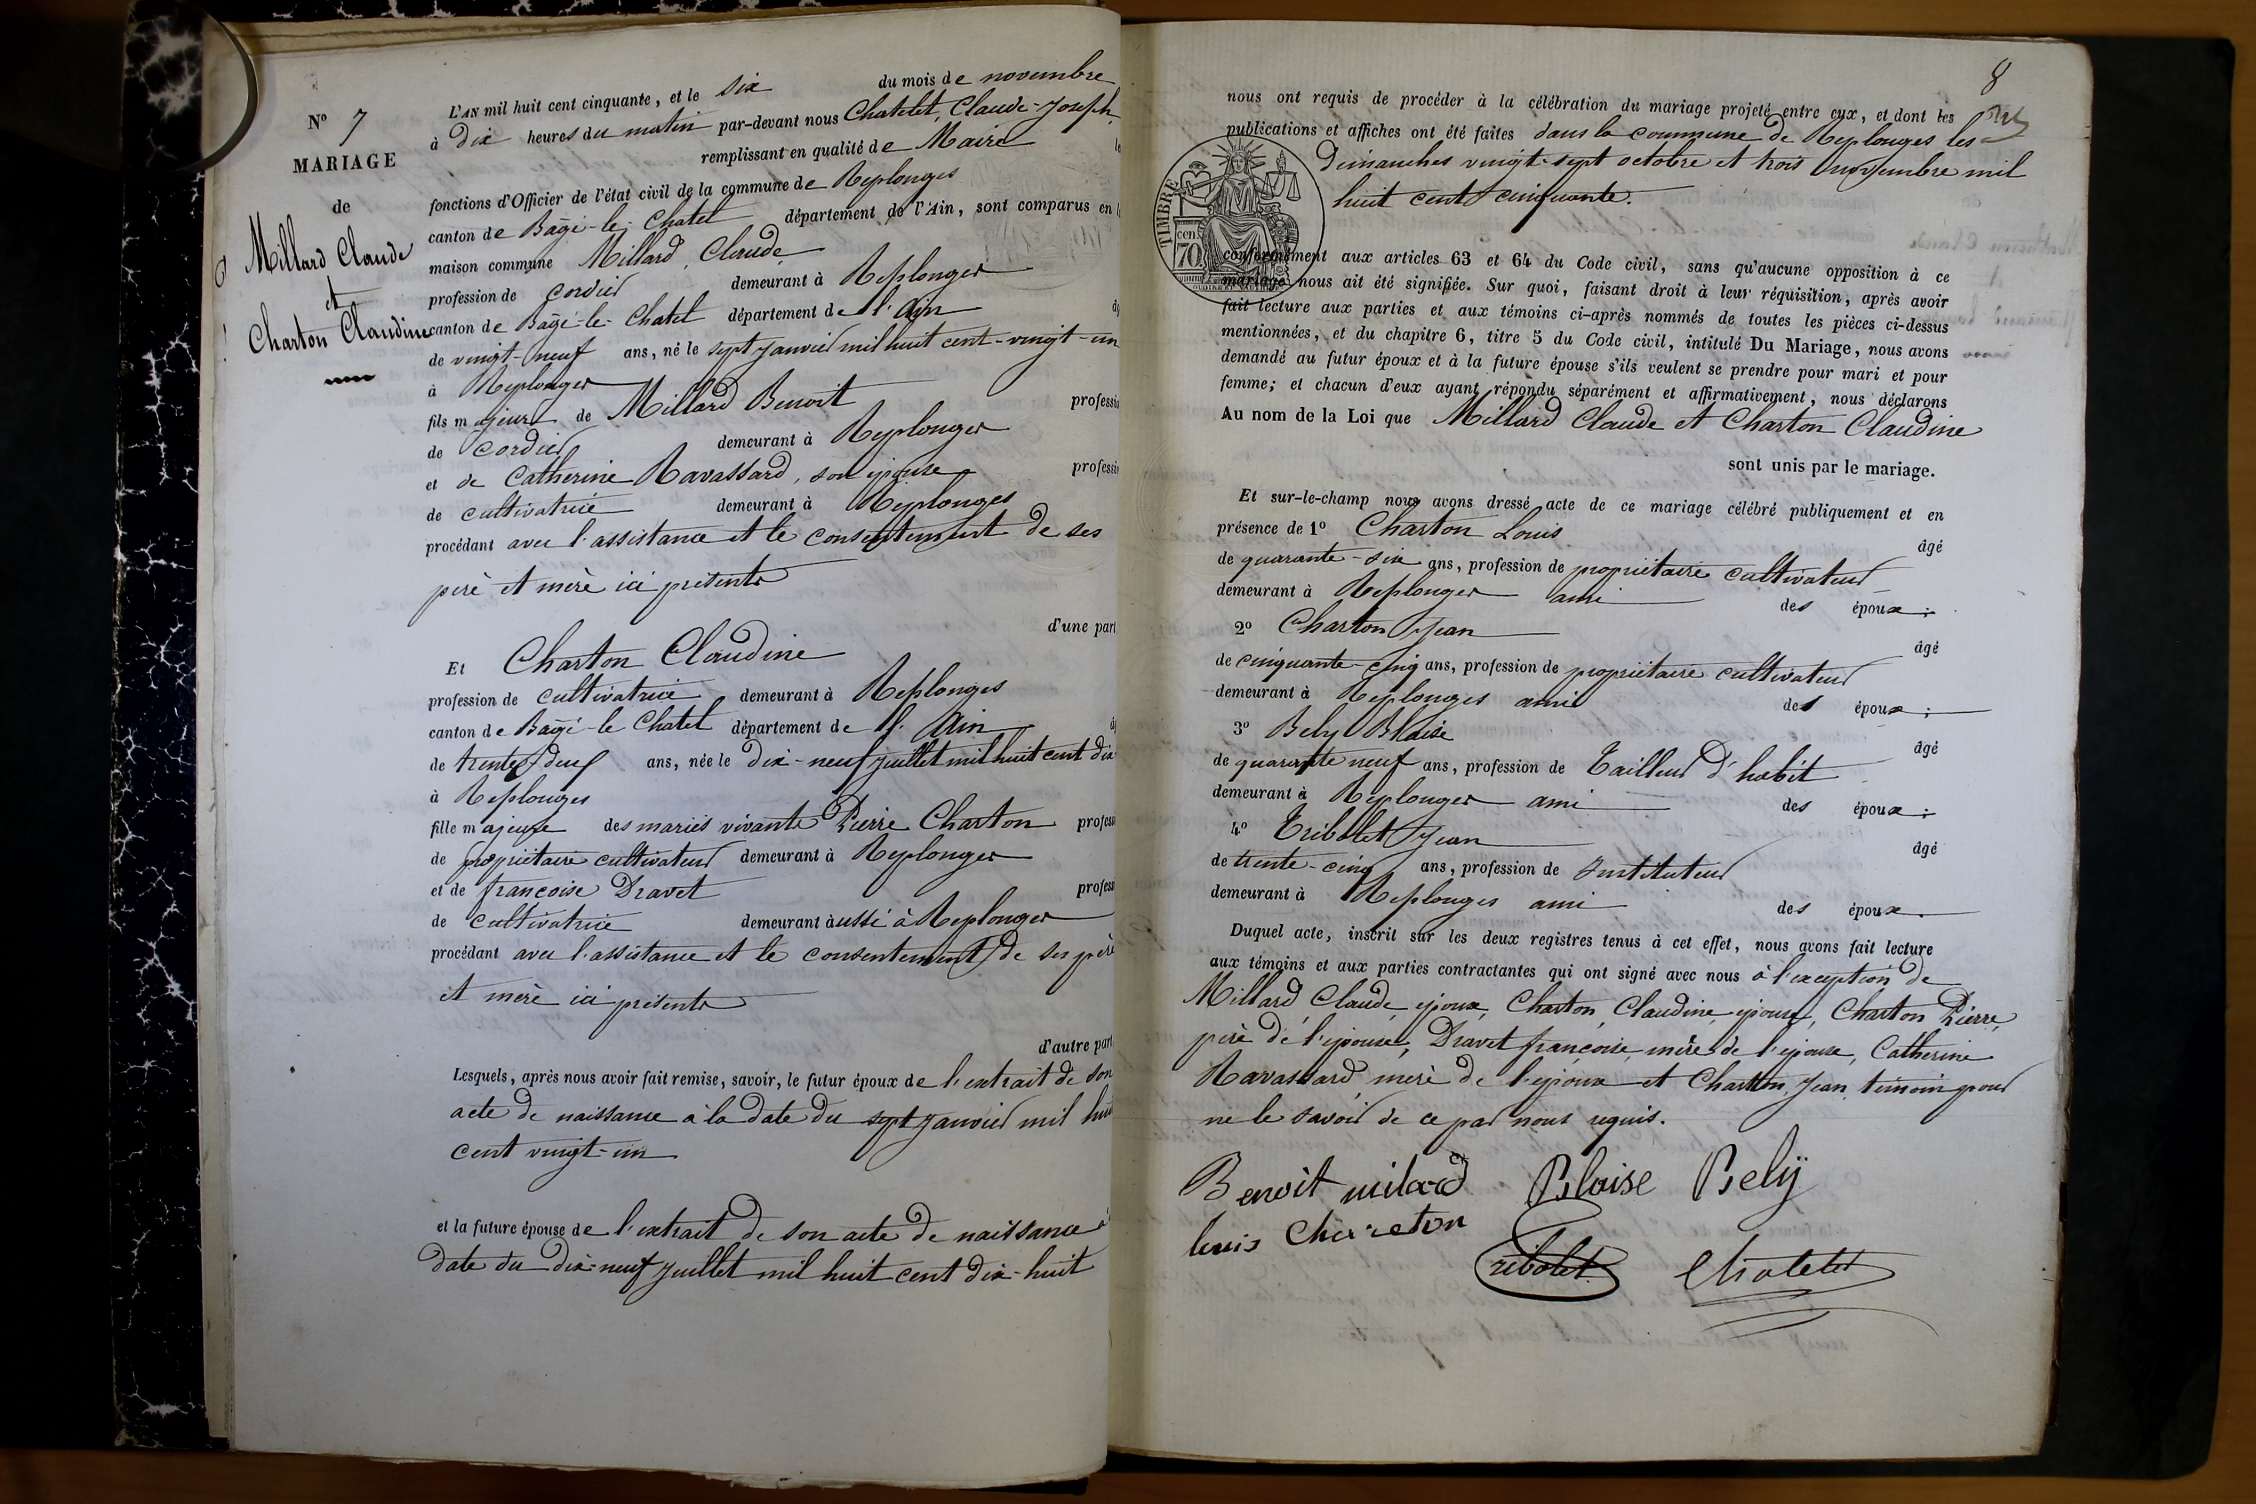 N° 7
MARIAGE
de
Millard Claude
et
Charton Claudine
L'AN mil huit cent cinquante, et le six du mois de novembre
à Dix heures du matin par-devant nous Chatelet, Claude-Joseph,
remplissant en qualité de Maire le
fonctions d'Officier de l'état civil de la commune de Replonges
canton de Bagé-le-Chatel département de l'Ain, sont comparus en
maison commune Millard, Claude
profession de cordier demeurant à Replonges
canton de Bagé-le-Chatel département de l'Ain
de vingt-neuf ans, né le sept janvier mil huit cent-vingt-un
à Replonges
fils majeur de Millard Benoit professi
de cordier demeurant à Replonges
et de Catherine Ravassard, son épouse professi
de cultivatrice demeurant à Replonges
procédant avec l'assistance et le consentement de ses
père et mère ici présents
d'une part
Et Charton Claudine
profession de cultivatrice demeurant à Replonges
canton de Bagé-le Chatel département de l'Ain
de trente deux ans, née le dix-neuf juillet mil huit cent dix
à Replonges
fille majeure des mariés vivants Pierre Charton profess
de propriétaire cultivateur demeurant à Replonges
et de françoise Dravet profess
de cultivatrice demeurant aussi à Replonges
procédant avec l'assistance et le consentement de ses père
et mère ici présents
d'autre part
Lesquels, après nous avoir fait remise, savoir, le futur époux de l'extrait de son
acte de naissance à la date du sept janvier mil hui
cent vingt-un
et la future épouse de l'extrait de son acte de naissance à
date du dix-neuf juillet mil huit cent dix-huit
8
nous ont requis de procéder à la célébration du mariage projeté entre eux, et dont les
publications et affiches ont été faites dans la commune de Replonges les
Dimanches vingt-sept octobre et trois novembre mil
huit cent cinquante.
TIMBRE
70 cen.
conformément aux articles 63 et 64 du Code civil, sans qu'aucune opposition à ce
mariage nous ait été signifiée. Sur quoi, faisant droit à leur réquisition, après avoir
fait lecture aux parties et aux témoins ci-après nommés de toutes les pièces ci-dessus
mentionnées, et du chapitre 6, titre 5 du Code civil, intitulé Du Mariage, nous avons
demandé au futur époux et à la future épouse s'ils veulent se prendre pour mari et pour
femme; et chacun d'eux ayant répondu séparément et affirmativement, nous déclarons
Au nom de la Loi que Millard Claude et Charton Claudine
sont unis par le mariage.
Et sur-le-champ nous avons dressé acte de ce mariage célébré publiquement et en
présence de 1° Charton Louis âgé
de quarante-six ans, profession de propriétaire cultivateur
demeurant à Replonges ami des époux;
2° Charton Jean âgé
de cinquante-cinq ans, profession de propriétaire cultivateur
demeurant à Replonges ami des époux;
3° Bely Blaise âgé
de quarante neuf ans, profession de Tailleur d'habit
demeurant à Replonges ami des époux;
4° Tribolet Jean âgé
de trente-cinq ans, profession de Instituteur
demeurant à Replonges ami des époux.
Duquel acte, inscrit sur les deux registres tenus à cet effet, nous avons fait lecture
aux témoins et aux parties contractantes qui ont signé avec nous à l'exception de
Millard Claude époux, Charton, Claudine épouse, Charton Pierre,
père de l'épouse, Dravet françoise mère de l'épouse, Catherine
Ravassard mère de l'époux et Charton, Jean, témoin pour
ne le savoir de ce par nous requis.
Benoît milard Blaise Bely
louis Charreton
Tribolet Chatelet